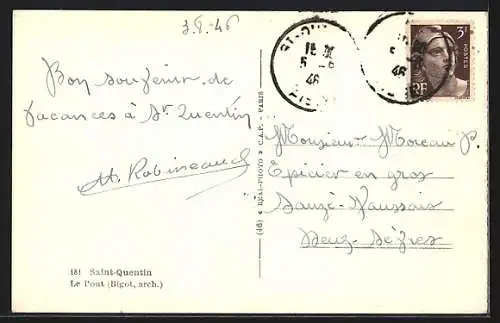 3.8.46
Bon souvenir de
vacances à St Quentin
M. Robineaud
181 Saint-Quentin
Le Pont (Bigot, arch.)
(46) « REAL-PHOTO » C.A.P. - PARIS
ST-QU
5 -8
46
5 -8
46
3F
POSTES
RF
Monsieur Moreau P.
Epicier en gros
Sauzé-Vaussais
Deux-Sèvres